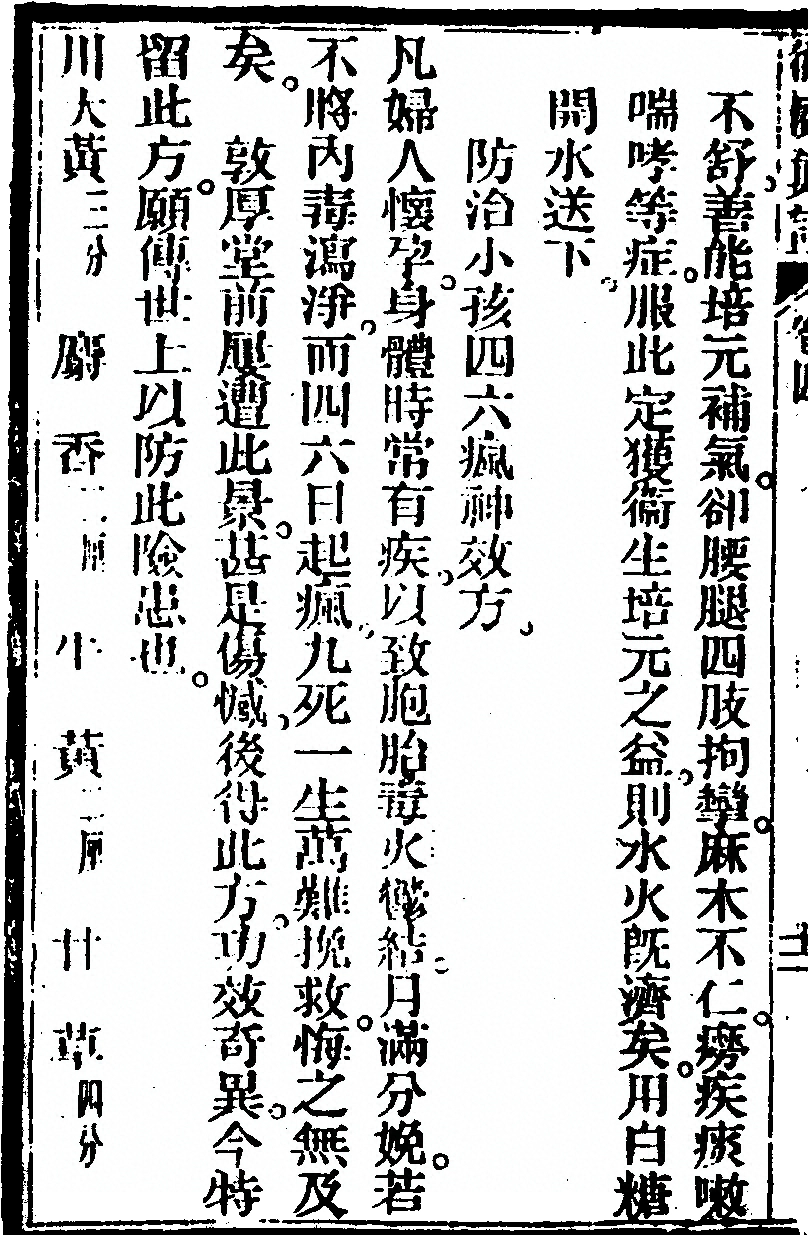 不舒。善能培元補氣。卻腰腿四肢拘攣。麻木不仁。癆疾痰嗽
喘哮等症。服此定獲衞生培元之益。則水火既濟矣。用白糖
開水送下。
防治小孩四六瘋神效方。
凡婦人懷孕。身體時常有疾。以致胞胎毒火鬱結。月滿分娩。若
不將內毒瀉淨。而四六日起瘋。九死一生。萬難挽救。悔之無及
矣。敦厚堂前屢遭此景。甚是傷慽。後得此方。功效奇異。今特
留此方。願傳世上以防此險患也。
川大黃三分 麝香二厘 牛黃二厘 甘草四分